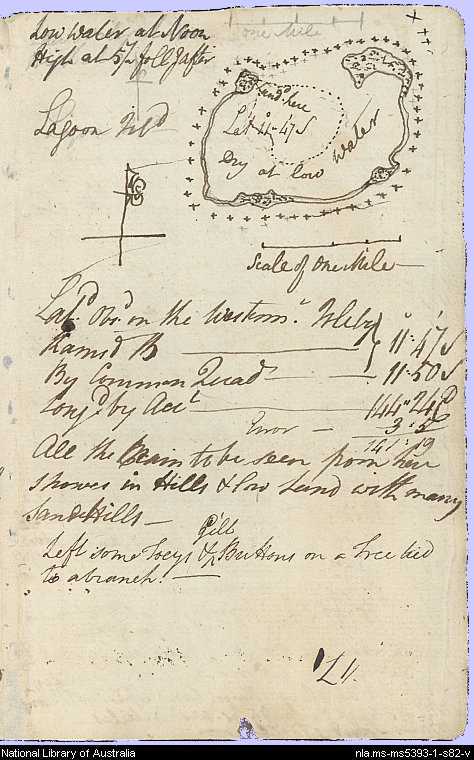 Low water at Noon
High at 5½ foll.g after
one Mile
Lagoon Isl.d
Land.d here
Lat. 11-47 S
Water
Dry at low
Scale of One Mile
Lat.d Obs.d on the Western.t Isl. by
Ramsd B 11·47 S
By Common Quad.t 11·50 S
Long.d by Acc.t 144"24
Error 3·5
141·19
All the Main to be seen from here
shower in Hills & low Land with many
Sand Hills
Gilt
Left some &c Buttons on a Tree tied
to a branch.
National Library of Australia
nla.ms-ms5393-1-s82-v